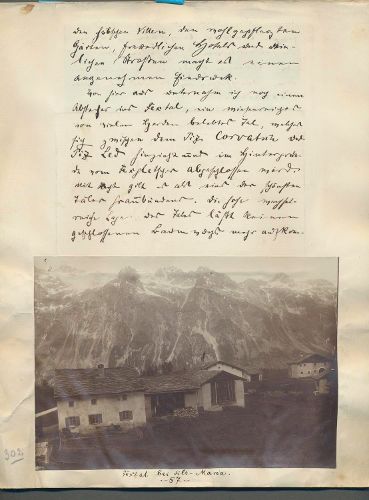 den hübschen Villen, den wohlgepflegten
Gärten, freundlichen Hotels und rein-
lichen Straßen macht es einen
angenehmen Eindruck.
Von hier aus unternahm ich noch einen
Abstecher ins Fextal, ein
von vielen Herden belebtes Tal, welches
sich zwischen dem Piz Corvatsch und
Piz Led hinzieht und im Hintergrun-
de vom Fexgletscher abgeschlossen wird.
Mit Recht gilt es als eins der schönsten
Täler Graubündens. Die hohe
reiche Lage des Tales läßt keinen
geschlossenen Baumwuchs mehr aufkom-
Fextal bei Sils-Maria.
-57-
302